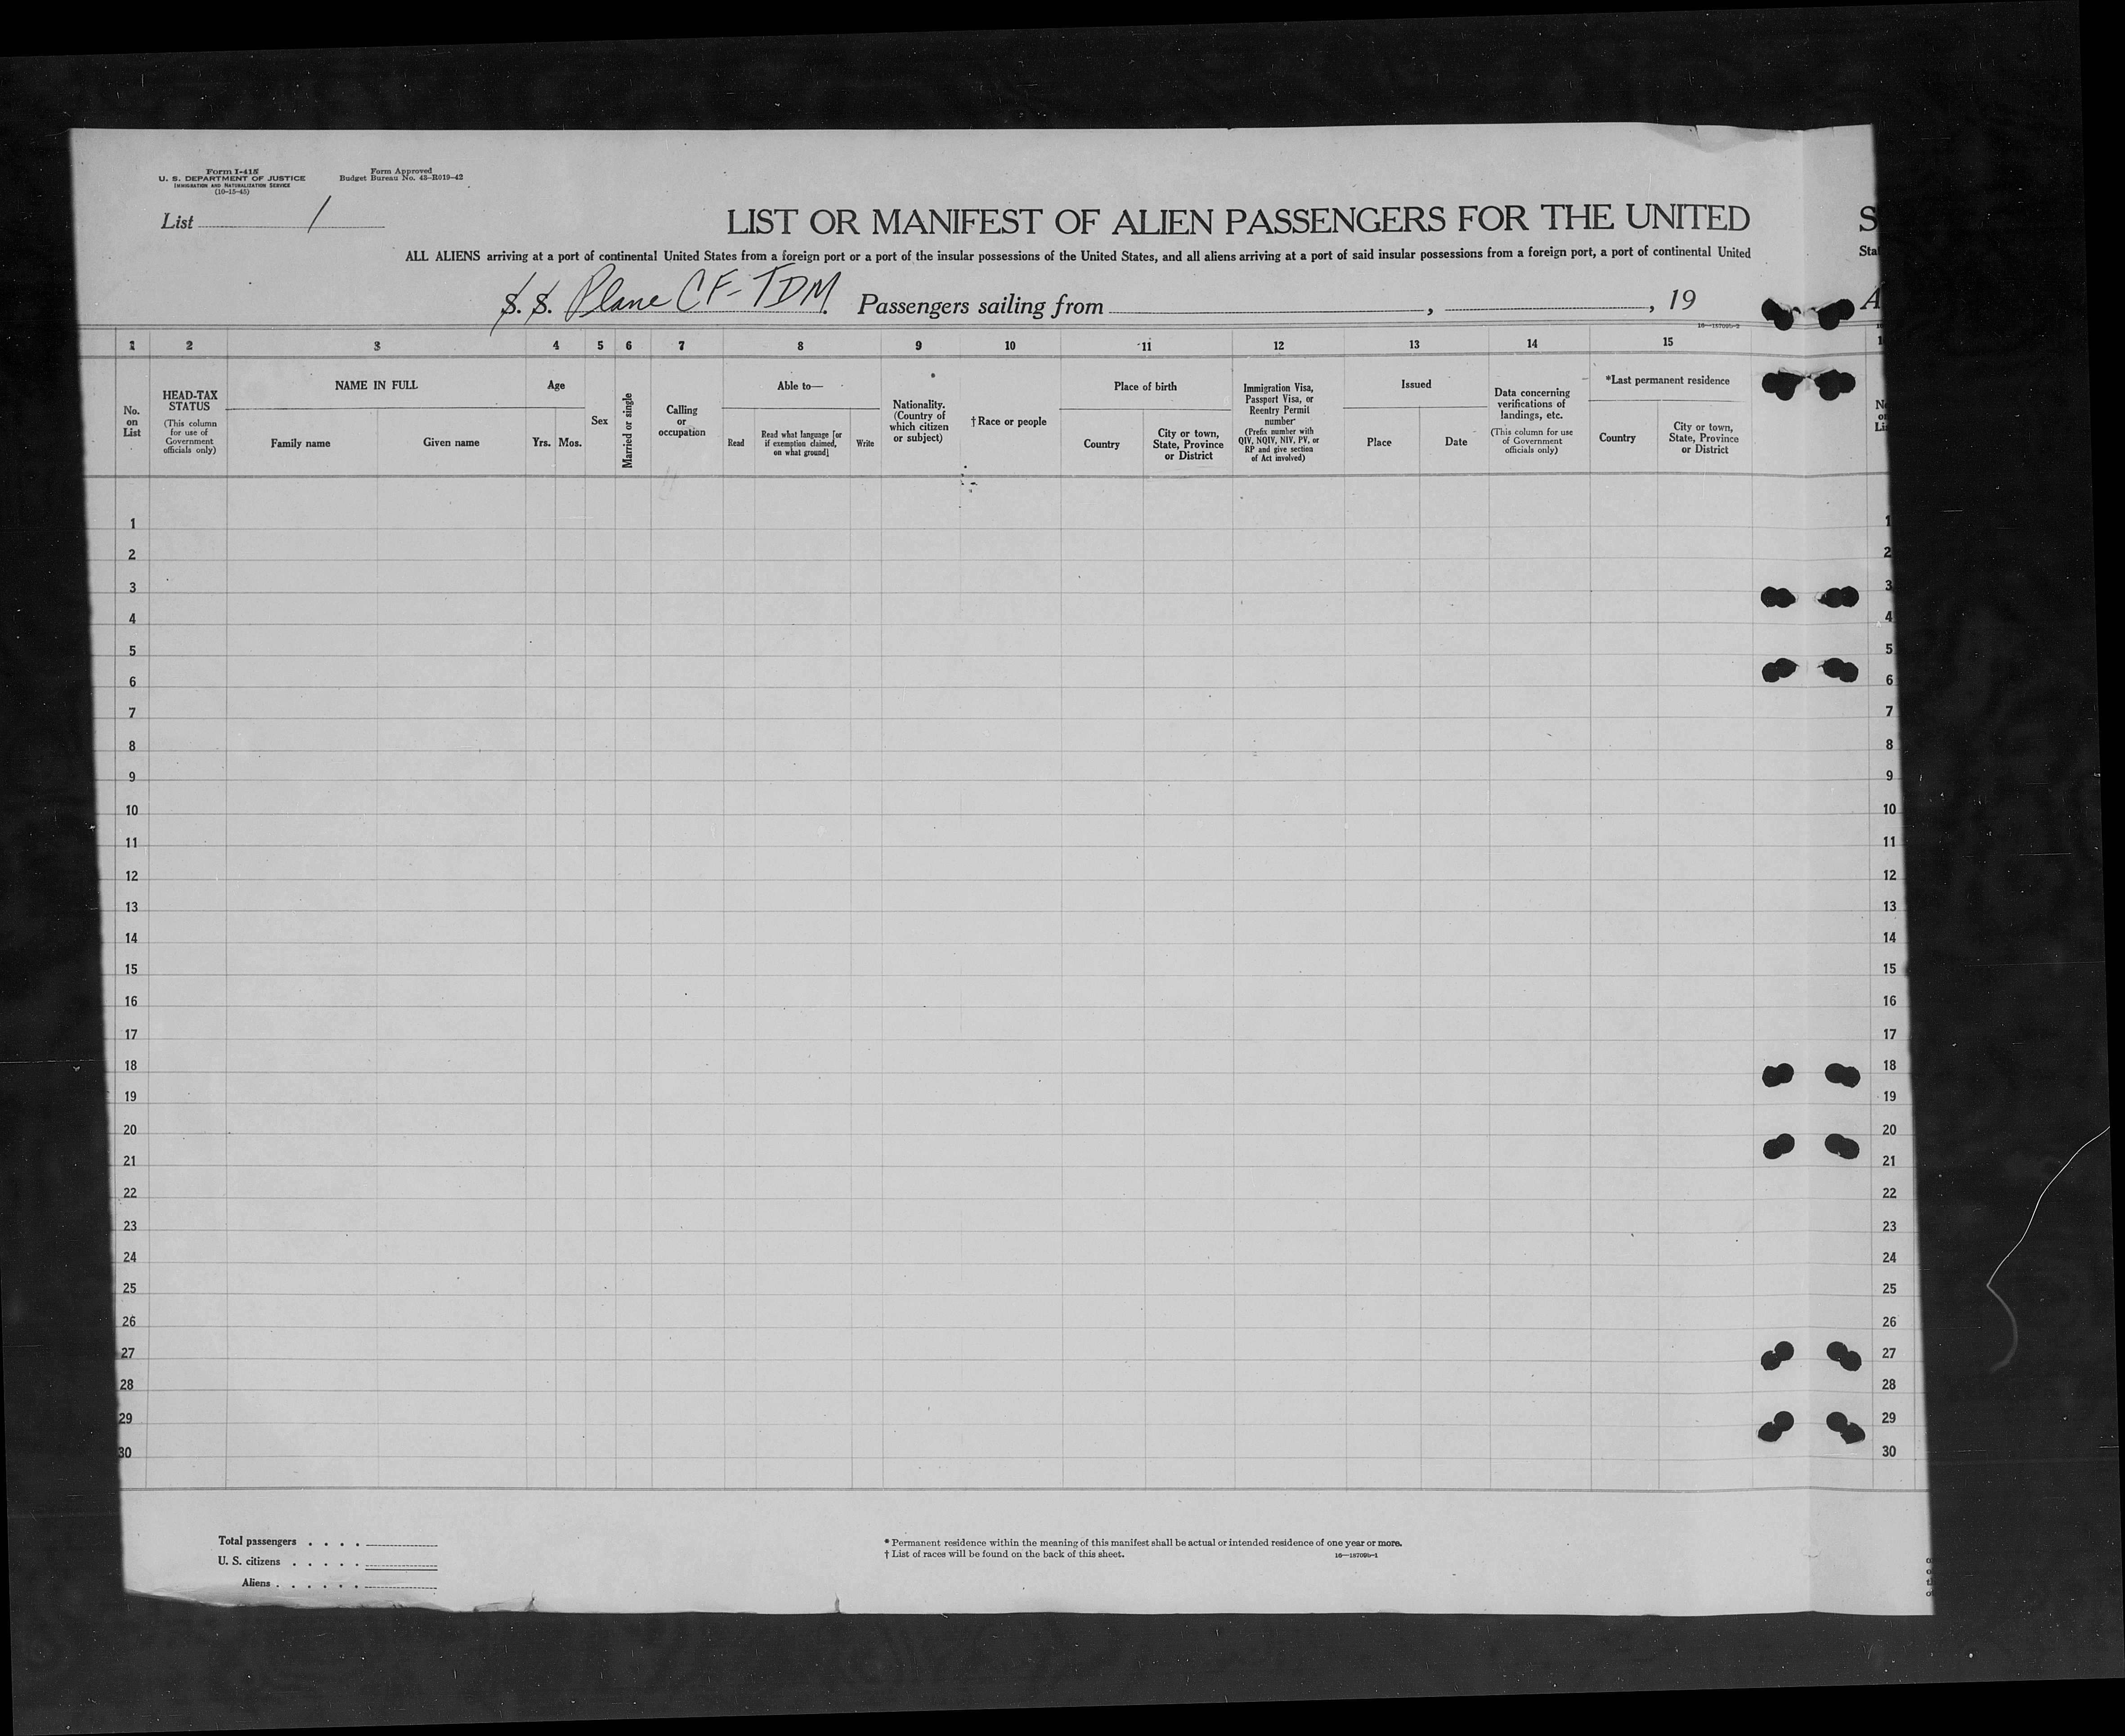 Form I-415
U. S. DEPARTMENT OF JUSTICE
IMMIGRATION AND NATURALIZATION SERVICE
(10-15-45)
Form Approved
Budget Bureau No. 43-R019-42
List 1
LIST OR MANIFEST OF ALIEN PASSENGERS FOR THE UNITED
S
ALL ALIENS arriving at a port of continental United States from a foreign port or a port of the insular possessions of the United States, and all aliens arriving at a port of said insular possessions from a foreign port, a port of continental United
Sta
S. S. Plane CF-TDM. Passengers sailing from , , 19
A
1 2 3 4 5 6 7 8 9 10 11 12 13 14 15
No. on List
HEAD-TAX STATUS
(This column for use of Government officials only)
NAME IN FULL
Family name
Given name
Age
Yrs. Mos.
Sex
Married or single
Calling or occupation
Able to—
Read
Read what language [or if exemption claimed, on what ground]
Write
Nationality. (Country of which citizen or subject)
†Race or people
Place of birth
Country
City or town, State, Province or District
Immigration Visa, Passport Visa, or Reentry Permit number
(Prefix number with QIV, NQIV, NIV, PV, or RP and give section of Act involved)
Issued
Place
Date
Data concerning verifications of landings, etc.
(This column for use of Government officials only)
*Last permanent residence
Country
City or town, State, Province or District
1 1
2 2
3 3
4 4
5 5
6 6
7 7
8 8
9 9
10 10
11 11
12 12
13 13
14 14
15 15
16 16
17 17
18 18
19 19
20 20
21 21
22 22
23 23
24 24
25 25
26 26
27 27
28 28
29 29
30 30
Total passengers . . . .
U. S. citizens . . . . .
Aliens . . . . . .
* Permanent residence within the meaning of this manifest shall be actual or intended residence of one year or more.
† List of races will be found on the back of this sheet.